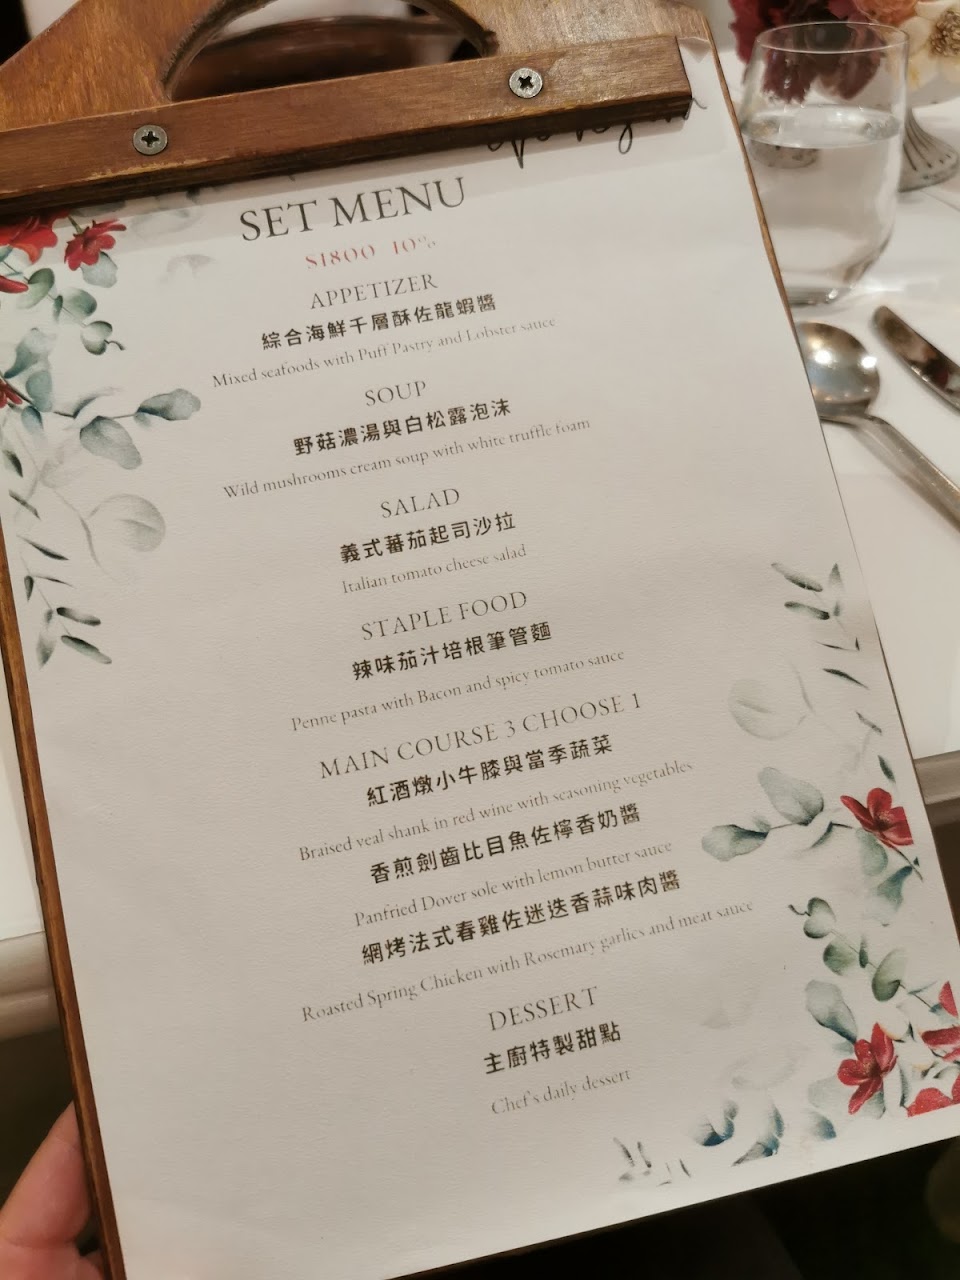 SET MENU
$1800 10%
APPETIZER
綜合海鮮千層酥佐龍蝦醬
Mixed seafoods with Puff Pastry and Lobster sauce
SOUP
野菇濃湯與白松露泡沫
Wild mushrooms cream soup with white truffle foam
SALAD
義式蕃茄起司沙拉
Italian tomato cheese salad
STAPLE FOOD
辣味茄汁培根筆管麵
Penne pasta with Bacon and spicy tomato sauce
MAIN COURSE 3 CHOOSE 1
紅酒燉小牛膝與當季蔬菜
Braised veal shank in red wine with seasoning vegetables
香煎劍齒比目魚佐檸香奶醬
Panfried Dover sole with lemon butter sauce
網烤法式春雞佐迷迭香蒜味肉醬
Roasted Spring Chicken with Rosemary garlics and meat sauce
DESSERT
主廚特製甜點
Chef's daily dessert